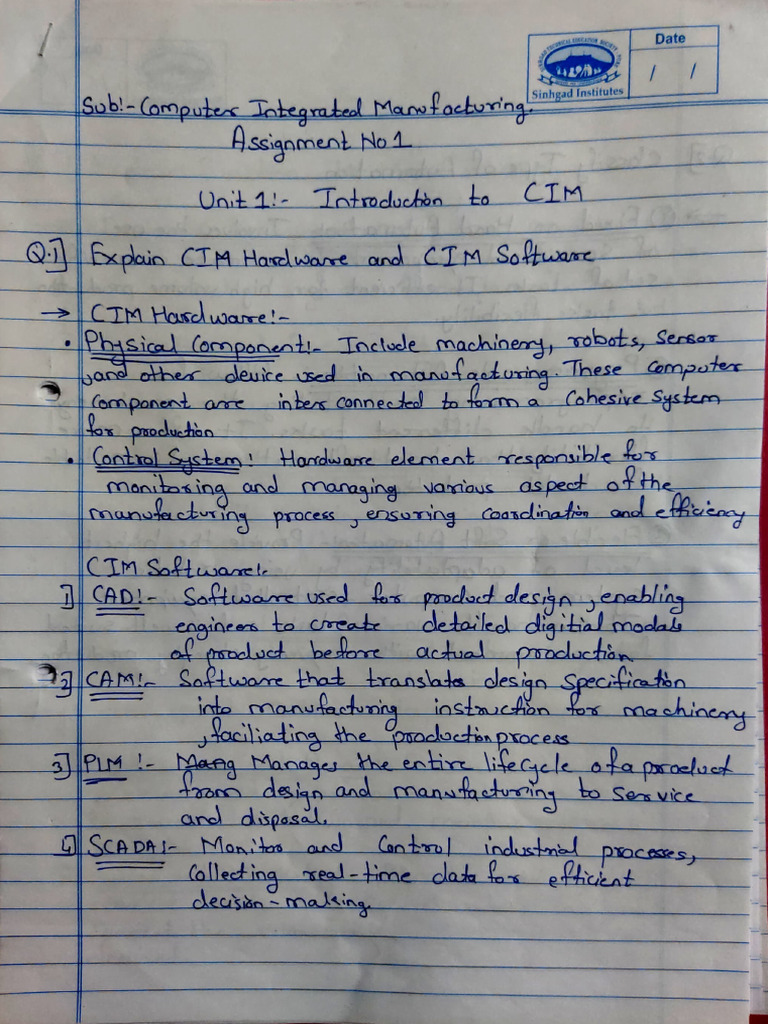 Date
/ /
Sinhgad Institutes
Sub:- Computer Integrated Manufacturing.
Assignment No 1
Unit 1:- Introduction to CIM
Q.1] Explain CIM Hardware and CIM Software
→ CIM Hardware:-
• Physical Component:- Include machinery, robots, sensor
,and other device used in manufacturing. These computer
component are inter connected to form a cohesive system
for production
• Control System: Hardware element responsible for
monitoring and managing various aspect of the
manufacturing process, ensuring coordination and efficiency
CIM Software:-
1] CAD:- Software used for product design, enabling
engineer to create detailed digitial modals
of product before actual production
2] CAM:- Software that translate design specification
into manufacturing instruction for machinery
,faciliating the production process
3] PLM :- Mang Manages the entire lifecycle of a product
from design and manufacturing to service
and disposal.
4] SCADA:- Monitor and control industrial processes,
collecting real-time data for efficient
decision-making.